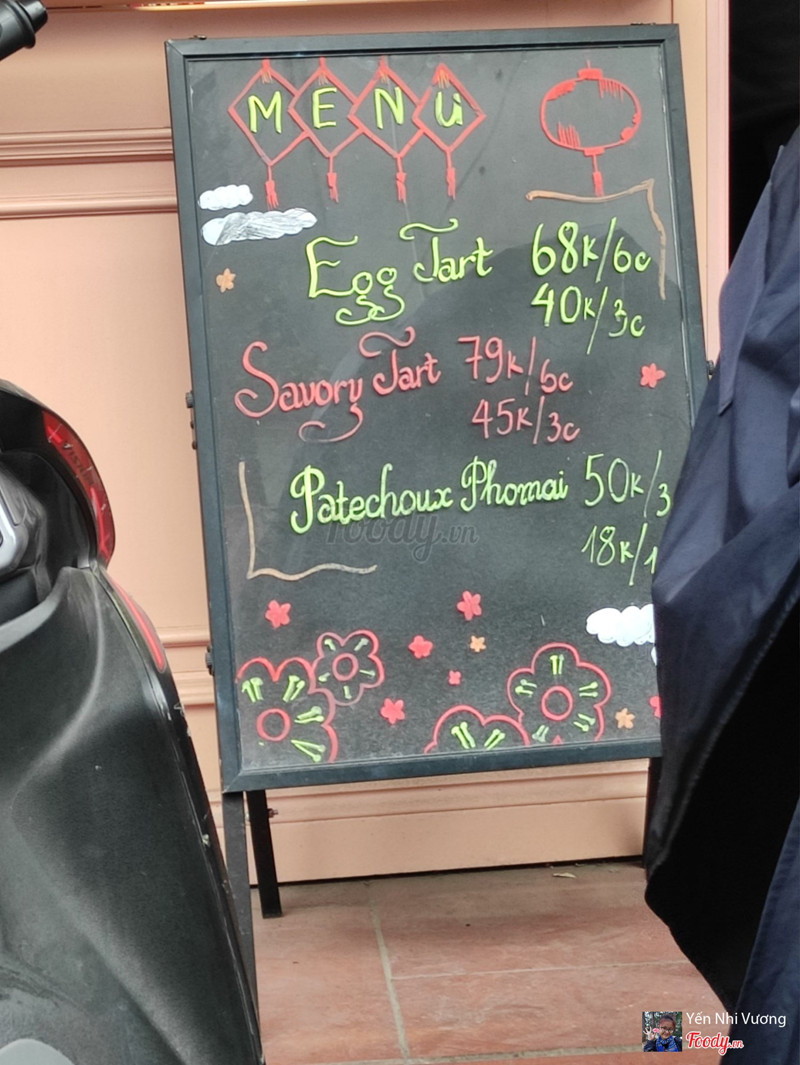 MENU
Egg Tart 68K/6c
40K/3c
Savory Tart 79K/6c
45K/3c
Patechoux Phomai 50K/3
18K/1
foody.vn
Yến Nhi Vương
Foody.vn